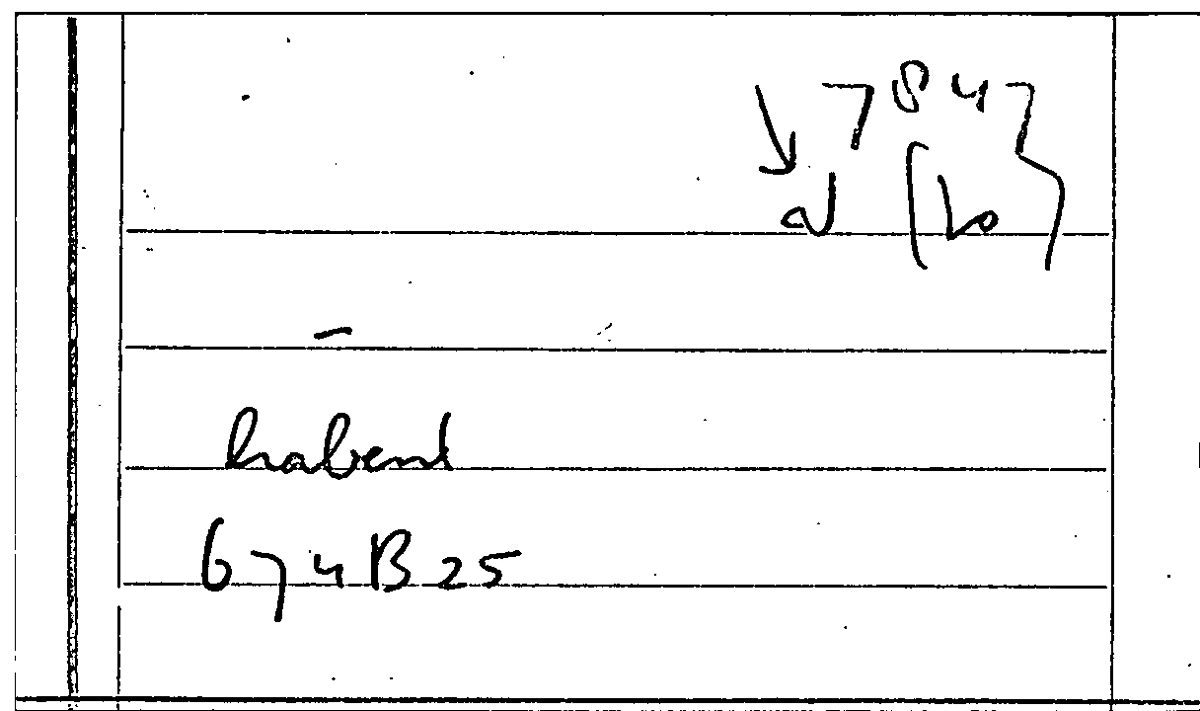 7847
habent
674B25